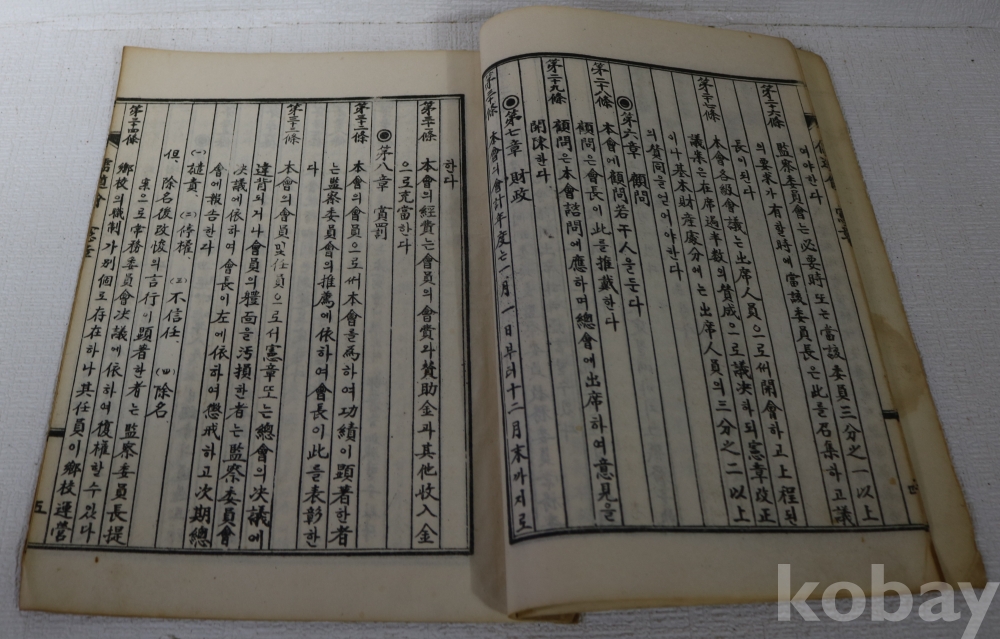 이야한다
第二十六條 監察委員會는必要時또는當該委員三分之一以上
의要求가有할時에當該委員長은此를召集하고議
長이된다
第二十七條 本會各級會議는出席人員으로써開會하고上程된
議案은在席過半數의賛成으로議决하되憲章改正
이나基本財産處分에는出席人員의三分之二以上
의賛同을얻어야한다
◉第六章 顧問
第二十八條 本會에顧問若干人을둔다
顧問은會長이此를推戴한다
第二十九條 顧問은本會諮問에應하며總會에出席하여意見을
開陳한다
◉第七章 財政
第三十條 本會의會計年度는一月一日부터十二月末까지로
한다
第三十一條 本會의經費는會員의會費와賛助金과其他收入金
으로充當한다
◉第八章 賞罰
第三十二條 本會의會員으로써本會를爲하여功績이顯著한者
는監察委員會의推薦에依하여會長이此를表彰한
다
第三十三條 本會의會員및任員으로서憲章또는總會의决議에
違背되거나會員의體面을汚損한者는監察委員會
决議에依하여會長이左에依하여懲戒하고次期總
會에報告한다
(一)譴責、(二)停權、(三)不信任、(四)除名
但、除名後改悛의言行이顯著한者는監察委員長提
案으로常務委員會决議에依하여復權할수있다
第三十四條 鄕校의職制가別個로存在하나其任員이鄕校運營
五
kobay